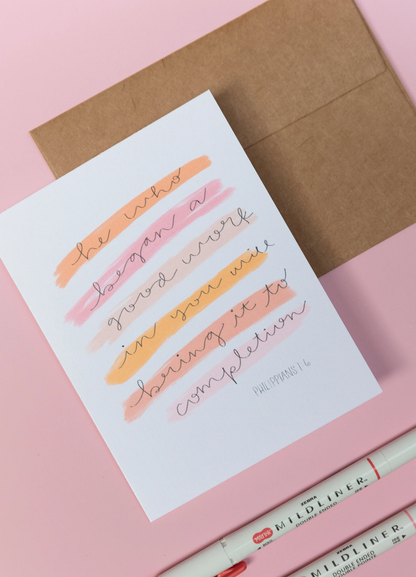 he who
began a
good work
in you will
bring it to
completion
PHILIPPIANS 1:6
ZEBRA
MILDLINER
DOUBLE ENDED
ZEBRA
MILDLINER
DOUBLE ENDED
DOUBLE POINTE